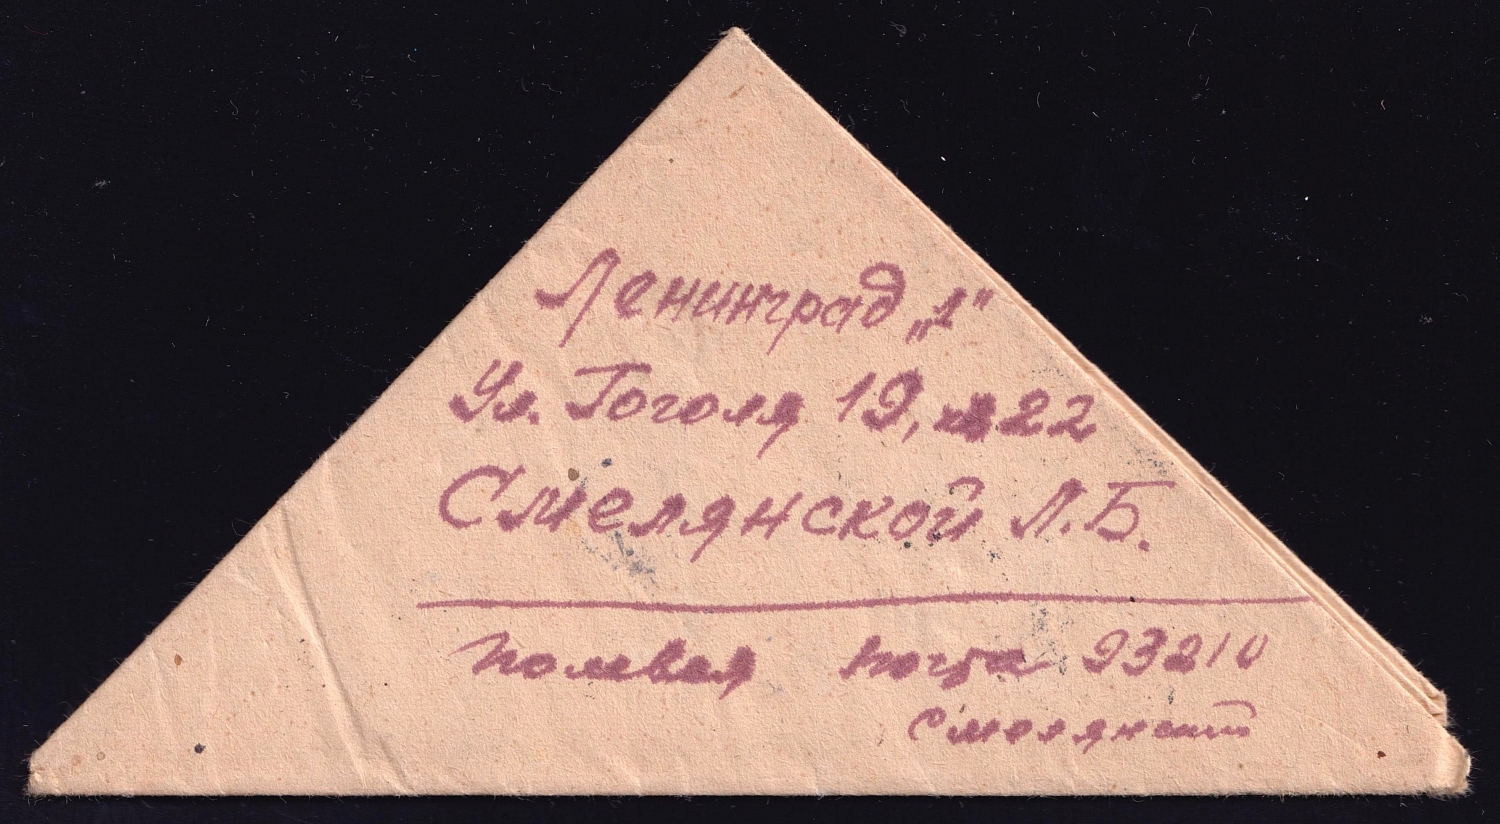 Ленинград „1"
Ул. Гоголя 19, кв 22
Смелянской Л.Б.
полевая почта 93210
Смелянский